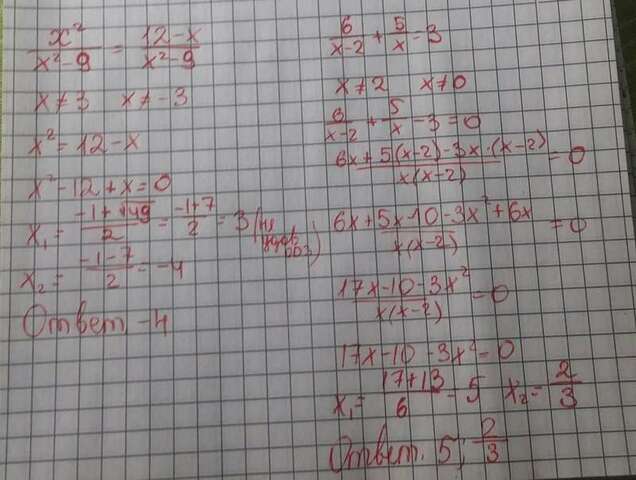 x²/(x²-9) = (12-x)/(x²-9)
x≠3 x≠-3
x²=12-x
x²-12+x=0
x₁= (-1+√49)/2 = (-1+7)/2 = 3 (не удов. ОДЗ)
x₂= (-1-7)/2 = -4
Ответ -4
6/(x-2) + 5/x = 3
x≠2 x≠0
6/(x-2) + 5/x - 3 = 0
(6x+5(x-2)-3x·(x-2))/(x(x-2)) = 0
(6x+5x-10-3x²+6x)/(x(x-2)) = 0
(17x-10-3x²)/(x(x-2)) = 0
17x-10-3x²=0
x₁= (17+13)/6 = 5 x₂= 2/3
Ответ. 5; 2/3